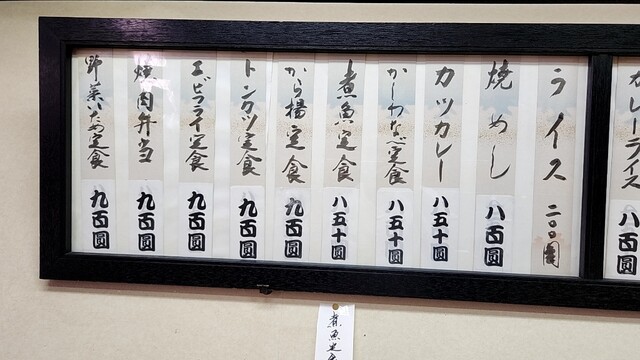 カレーライス 八百圓
ライス 二〇〇圓
焼めし 八百圓
カツカレー 八五十圓
かしわなべ定食 八五十圓
煮魚定食 八五十圓
から揚定食 九百圓
トンカツ定食 九百圓
エビフライ定食 九百圓
焼肉弁当 九百圓
野菜いため定食 九百圓
煮魚定食